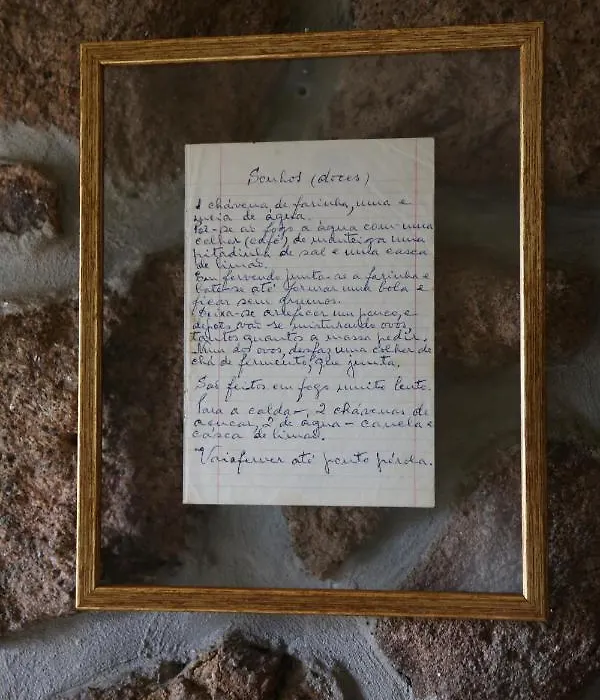 Sonhos (doces)
1 chávena de farinha, uma e
meia de água.
Põe-se ao fogo a água com uma
colher (café) de manteiga uma
pitadinha de sal e uma casca
de limão.
Em fervendo junta-se a farinha e
bate-se até formar uma bola e
ficar sem grumos.
Deixa-se arrefecer um pouco, e
depois, vão-se misturando ovos,
tantos quantos a massa pedir.
Num dos ovos, desfaz uma colher de
chá de fermento, que junta.
São feitos em fogo muito lento.
Para a calda-, 2 chávenas de
açucar, 2 de água - canela e
casca de limão.
Vai a ferver até ponto pérola.